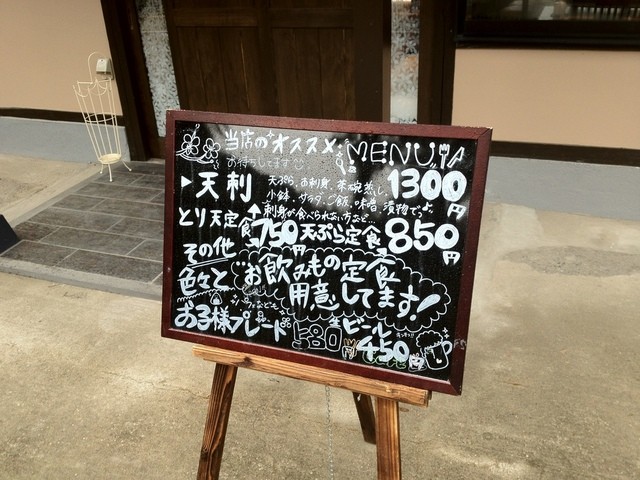 当店のオススメ MENU
お待ちしてます
▶天刺 天ぷら、お刺身、茶碗蒸し、 1300円
小鉢、サラダ、ご飯、味噌、漬物です。
↑刺身が食べられない方など…
とり天定食750円 天ぷら定食850円
その他
色々と お飲みもの定食
用意してます!
お子様プレート 580円 生ビール
450円